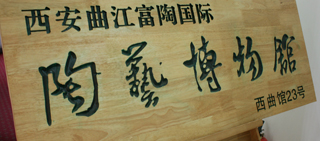 西安曲江富陶国际
陶藝博物館
西曲馆23号